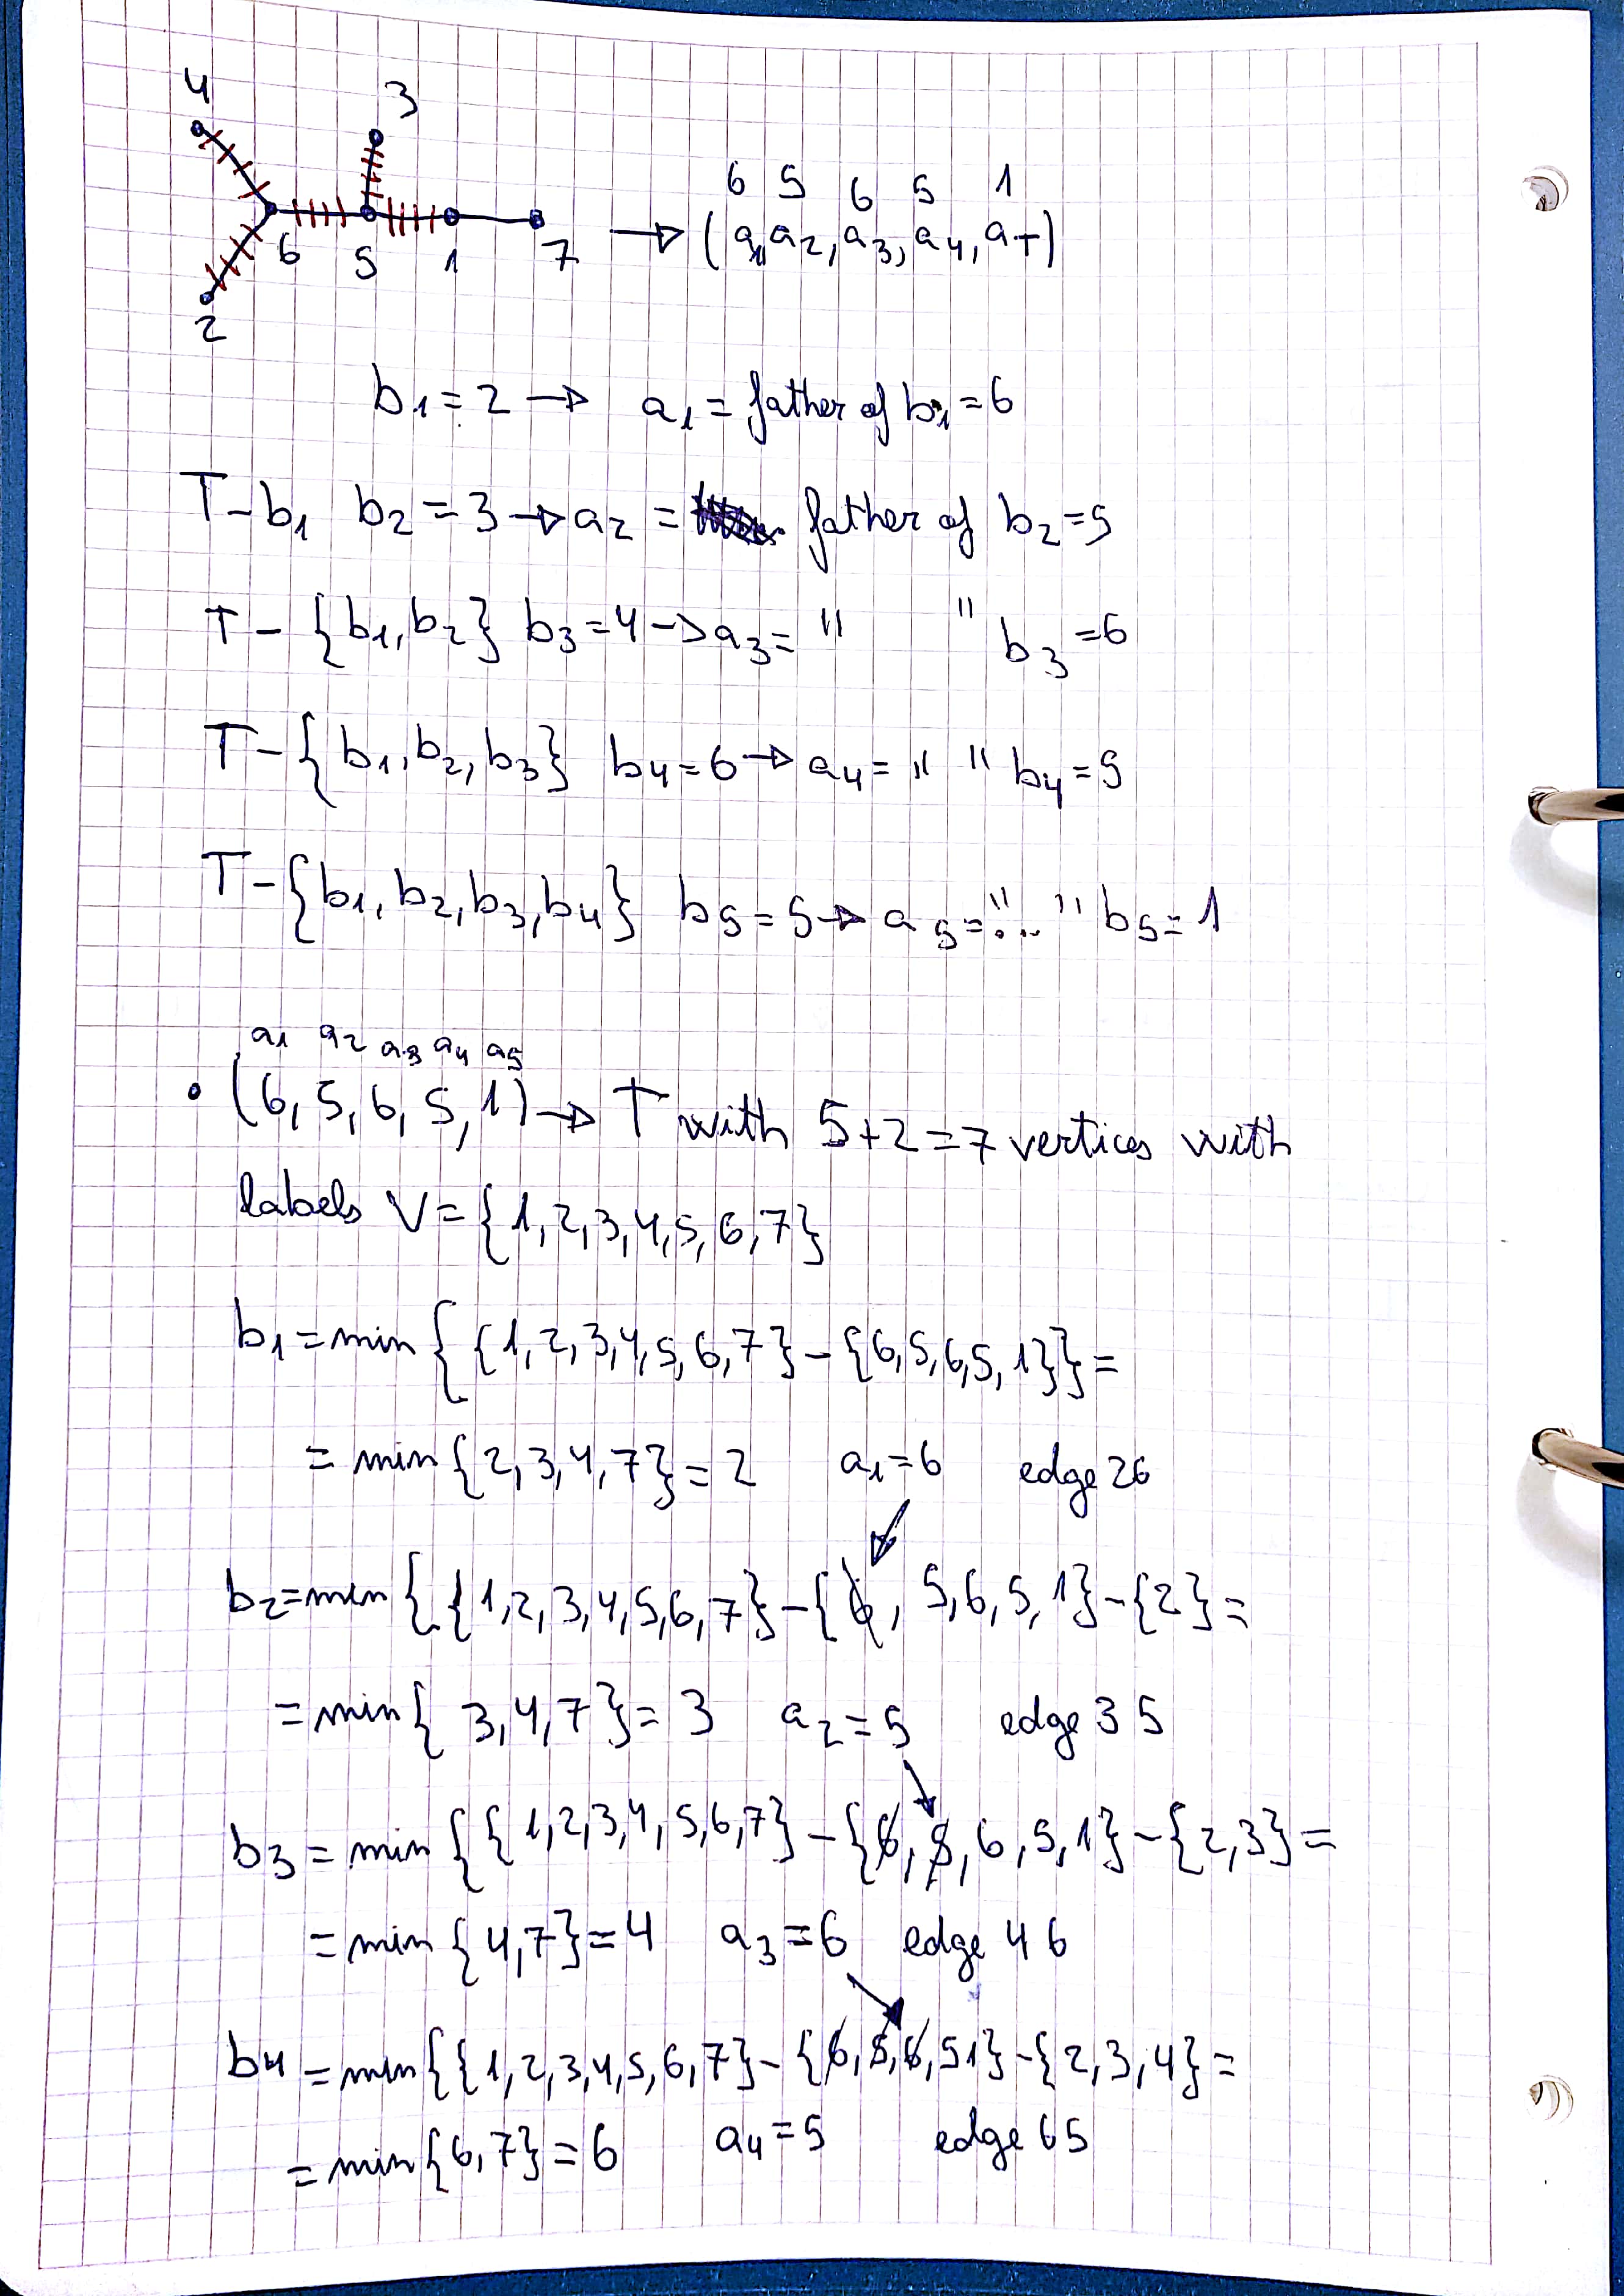 4 3
6 5 6 5 1
→ (a1, a2, a3, a4, a5)
6 5 1 7
2
b1 = 2 → a1 = father of b1 = 6
T - b1 b2 = 3 → a2 = father of b2 = 5
T - {b1, b2} b3 = 4 → a3 = " " b3 = 6
T - {b1, b2, b3} b4 = 6 → a4 = " " b4 = 5
T - {b1, b2, b3, b4} b5 = 5 → a5 = " .. " b5 = 1
a1 a2 a3 a4 a5
• (6, 5, 6, 5, 1) → T with 5+2=7 vertices with
labels V = {1,2,3,4,5,6,7}
b1 = min { {1,2,3,4,5,6,7} - {6,5,6,5,1}} =
= min {2,3,4,7} = 2 a1 = 6 edge 26
b2 = min { {1,2,3,4,5,6,7} - {6, 5,6,5,1} - {2} =
= min { 3,4,7} = 3 a2 = 5 edge 35
b3 = min { {1,2,3,4,5,6,7} - {6,5,6,5,1} - {2,3} =
= min {4,7} = 4 a3 = 6 edge 46
b4 = min{ {1,2,3,4,5,6,7} - {6,5,6,51} - {2,3,4} =
= min{6,7} = 6 a4 = 5 edge 65